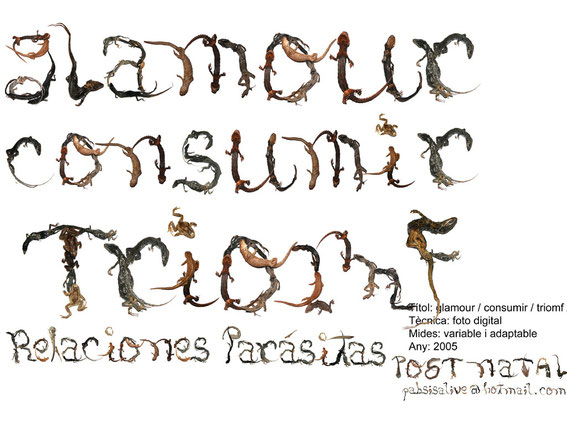 glamour
consumir
Triomf
Títol: glamour / consumir / triomf
Tècnica: foto digital
Mides: variable i adaptable
Any: 2005
Relaciones Parásitas
POST NATAL
pabsisalive@hotmail.com